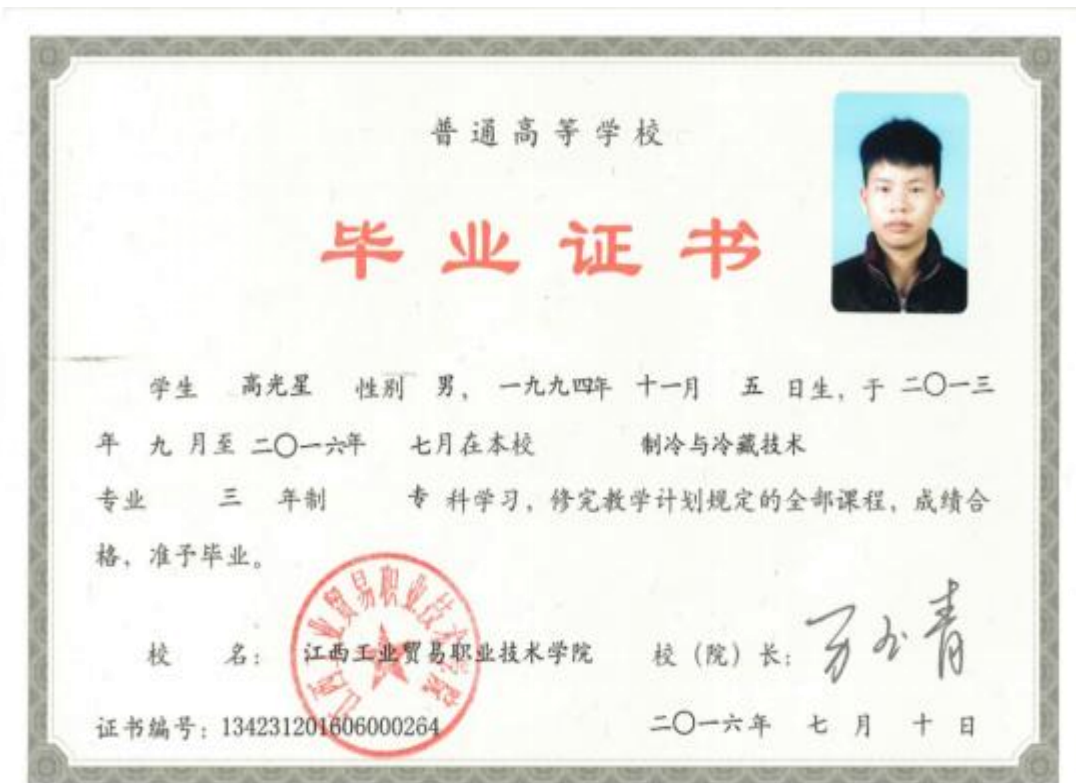 普通高等学校
毕业证书
学生 高光星 性别 男，一九九四年 十一月 五 日生，于 二〇一三
年 九 月至 二〇一六年 七月在本校 制冷与冷藏技术
专业 三 年制 专 科学习，修完教学计划规定的全部课程，成绩合
格，准予毕业。
江西工业贸易职业技术学院
校 名： 江西工业贸易职业技术学院 校（院）长：
证书编号：134231201606000264 二〇一六年 七 月 十 日